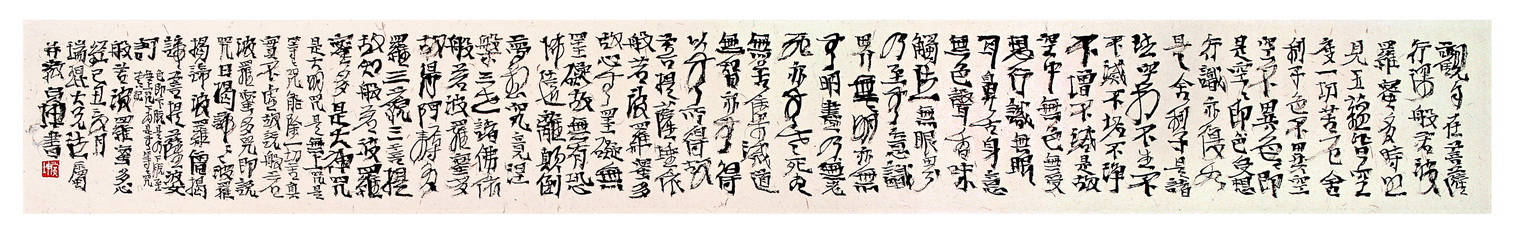 觀自在菩薩
行深般若波
羅蜜多時照
見五蘊皆空
度一切苦厄舍
利子色不異空
空不異色色即
是空空即色受想
行識亦復如
是舍利子是諸
法空相不生不
不滅不垢不淨
不增不減是故
空中無色無受
想行識無眼
耳鼻舌身意
無色聲香味
觸法無眼界
乃至無意識
界無無明亦無
無明盡乃無老
死亦無老死盡
無苦集滅道
無智亦無得
以無所得故
菩提薩埵依
般若波羅蜜多
故心無罣礙
罣礙故無有恐
怖遠離顛倒
夢想究竟涅
槃三世諸佛依
般若波羅蜜多
故得阿耨多
羅三藐三菩提
故知般若波羅
蜜多是大神咒
是大明咒是無上咒是
等咒能除一切苦真
實不虛故說般若
波羅蜜多咒即說
咒曰揭諦揭諦波羅
揭諦波羅僧揭
諦菩提薩婆
訶
般若波羅蜜多心
經己丑六月
瑞根大兄法屬
書